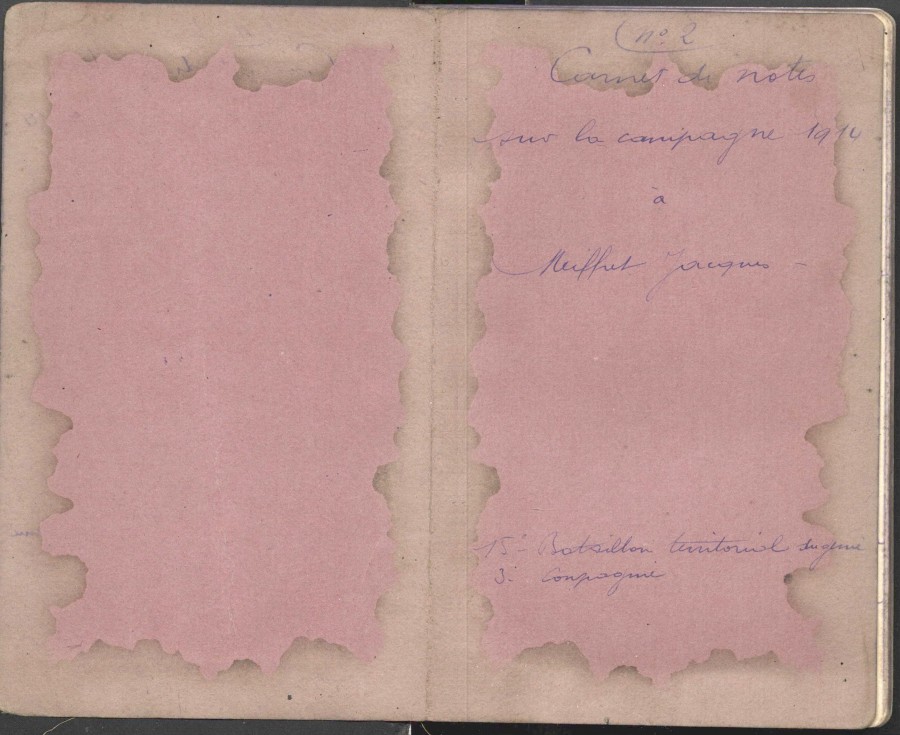 n° 2
Carnet de notes
sur la campagne 1914
à
Meiffret Jacques -
15e Bataillon territorial du génie
3e Compagnie